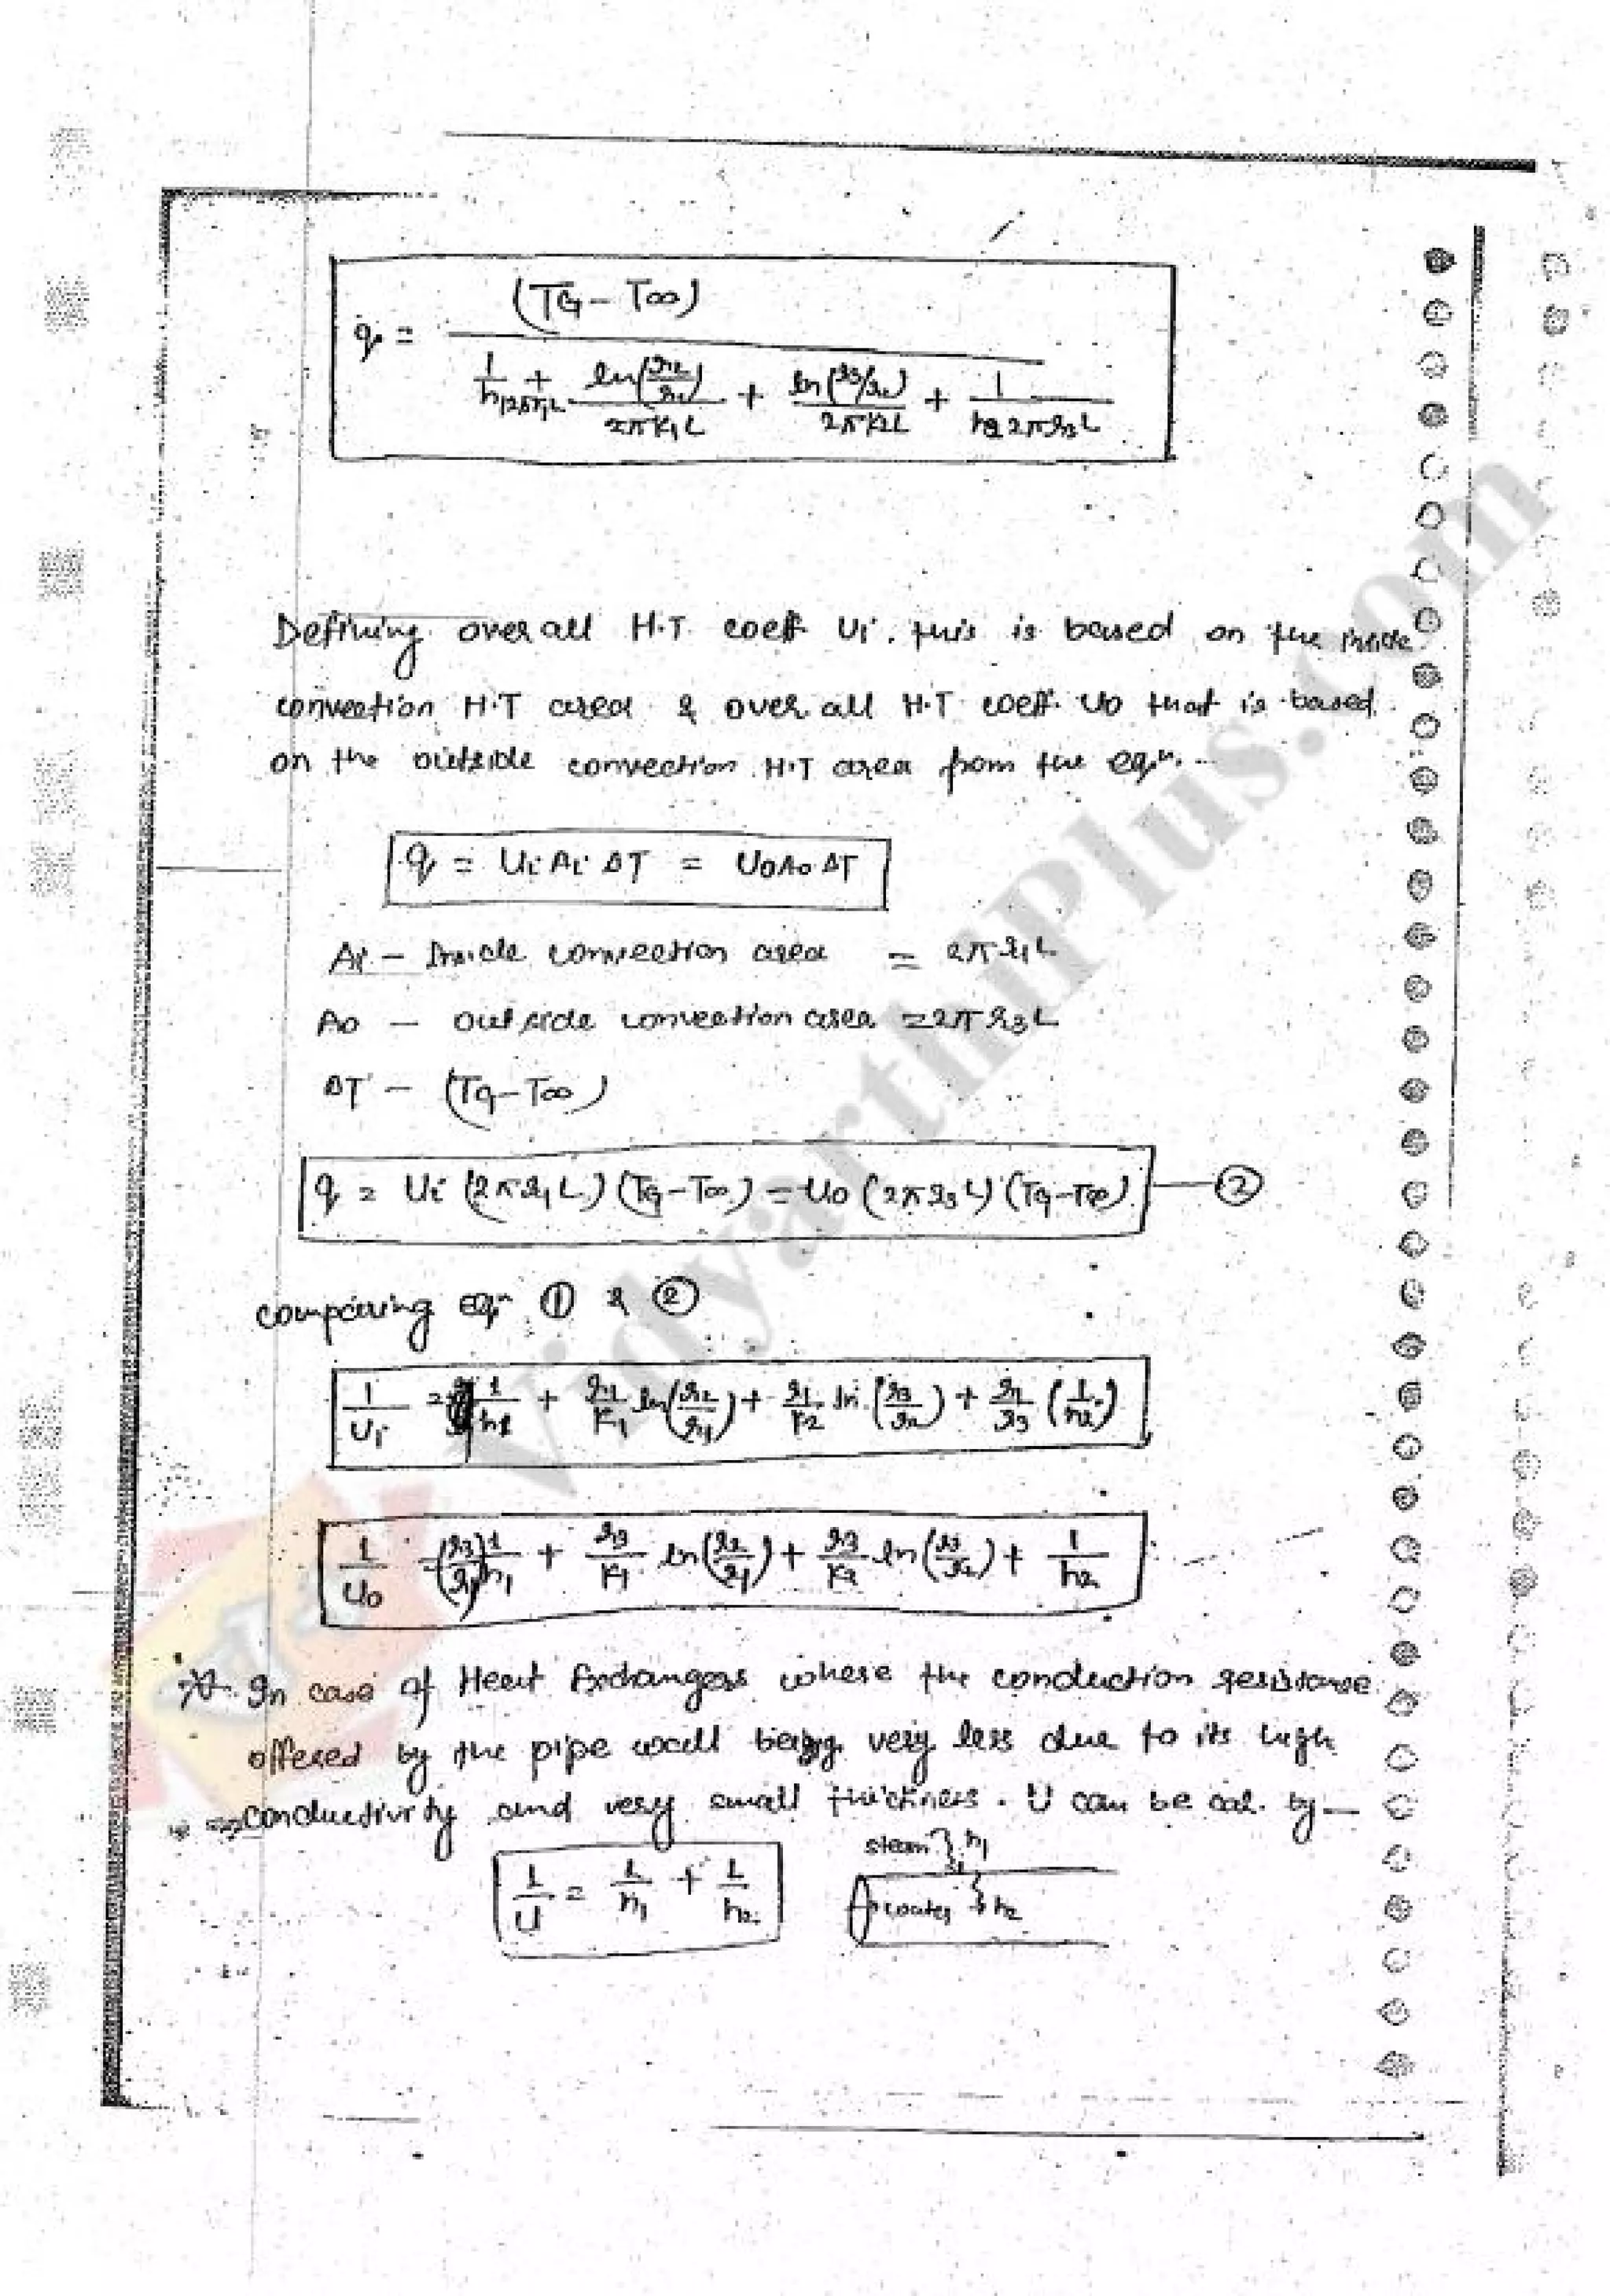 q = (TG - T∞) / ( 1/(h1 2πr1L) + ln(r2/r1)/(2πK1L) + ln(r3/r2)/(2πK2L) + 1/(h2 2πr3L) )
Defining over all H.T. coeff Ui. this is based on the inside
convection H.T area & over all H.T coeff. Uo that is based
on the outside convection H.T area from the eqn.
q = Ui Ai ΔT = UoAo ΔT
Ai - Inside convection area = 2πr1L
Ao - outside convection area = 2πr3L
ΔT - (TG-T∞)
q = Ui (2πr1L) (TG-T∞) = Uo (2πr3L) (TG-T∞) — ②
comparing eqn ① & ②
1/Ui = 1/h1 + r1/K1 ln(r2/r1) + r1/K2 ln(r3/r2) + r1/r3 (1/h2)
1/Uo = (r3/r1) 1/h1 + r3/K1 ln(r2/r1) + r3/K2 ln(r3/r2) + 1/h2
In case of Heat Exchangers where the conduction resistance
offered by the pipe wall being very less due to its high
conductivity and very small thickness. U can be cal. by —
1/U = 1/h1 + 1/h2
steam } h1
water } h2
VidyarthiPlus.com